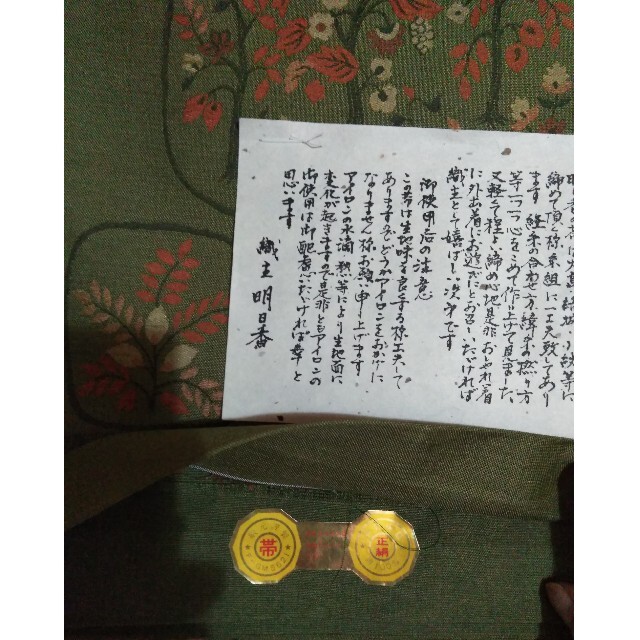 締めて頂く様糸組に工夫致してあり
ます 経糸の合わせ方 緯糸の撚り方
等一つ一つ心をこめて作り上げて見ました
又軽くて程よい締め心地是非おしゃれ着
に外出着にお遊びにとお召しいただければ
織主として嬉ばしい次第です
御使用后の注意
この帯は生地味を良くする様工夫して
ありますのでどうかアイロンをおかけに
なりません様お願い申し上げます
アイロンの水滴 熱等により生地面に
変化が起きますので是非ともアイロンの
御使用は御配慮いただければ幸と
思います
織主 明日香
帯
正絹